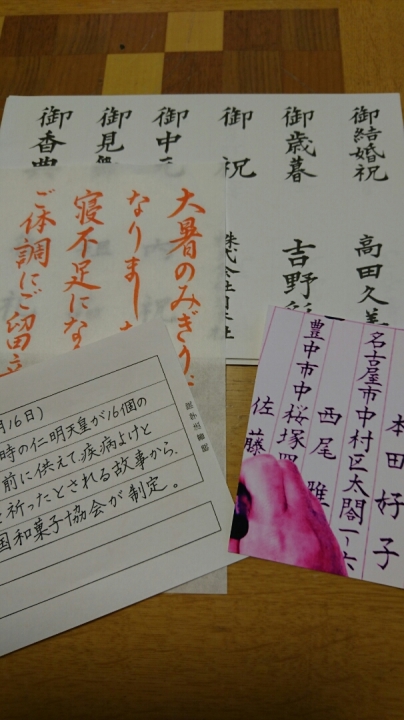 御結婚祝
高田久美
御歳暮
吉野
御祝
株式会社
御中元
御見舞
御香典
大暑のみぎり
なりました
寝不足にな
ご体調にご留意
本田好子
名古屋市中村区太閤一ー六
西尾雅
豊中市中桜塚四
佐藤
月16日)
時の仁明天皇が16個の
前に供えて、疾病よけと
を祈ったとされる故事から、
国和菓子協会が制定。